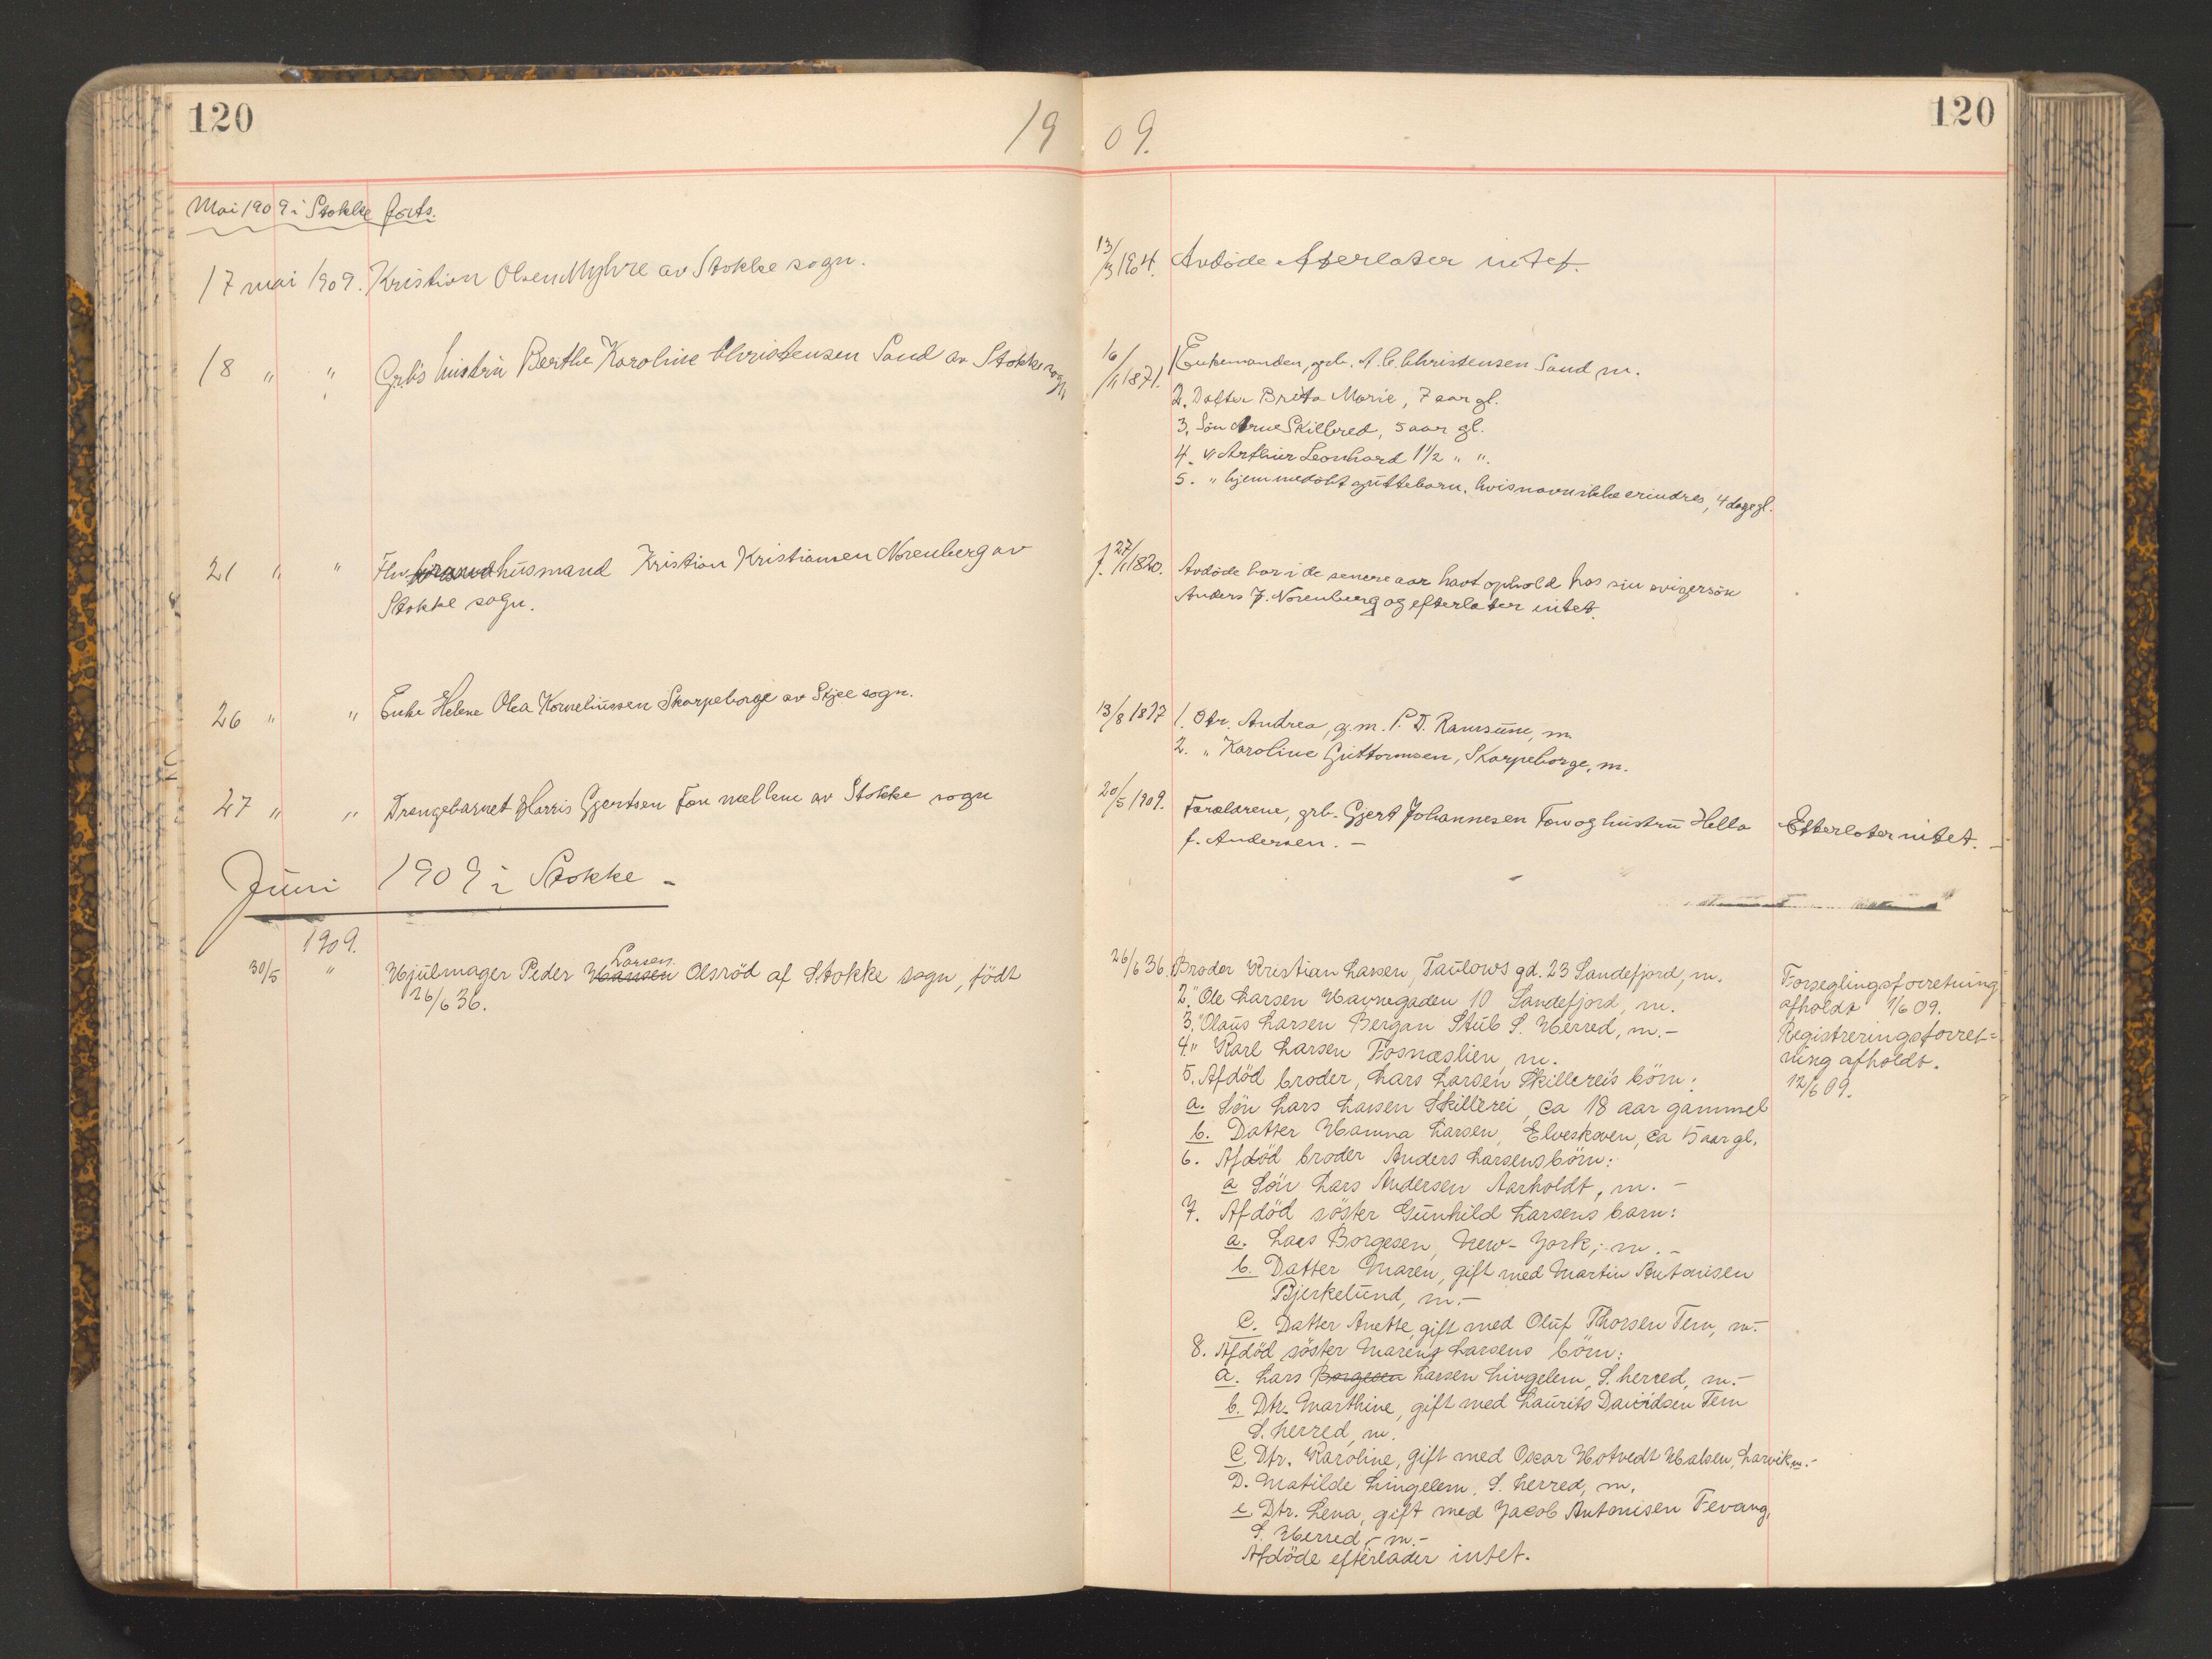 120
19 09.
120
Mai 1909 i Stokke forts.
17 mai 1909. Kristian Olsen Myhre av Stokke sogn.
18 " " Grb's hustru Berthe Karoline Christensen Sand av Stokke sogn
21 " " Fhv husmand Kristian Kristiansen Norenberg av
Stokke sogn.
26 " " Enke Helene Olea Korneliussen Skorpeborge av Skjee sogn.
27 " " Drengebarnet Harris Gjertsen Fon mellem av Stokke sogn
Juni 1909 i Stokke -
1909.
Larsen
30/5 " Hjulmager Peder Hansen Olsröd af Stokke sogn, födt
26/6 36.
13/3 1904. Avdöde efterlater intet.
16/11 1871. 1 Enkemanden, grb. A. C. Christensen Sand m.
2. Datter Brita Marie, 7 aar gl.
3. Sön Arne Skilbred, 5 aar gl.
4. " Arthur Leonhard 1 1/2 " ".
5. " hjemmedöbt guttebarn, hvis navn ikke erindres, 4 dage gl.
f. 27/1 1820. Avdöde har i de senere aar havt ophold hos sin svigersön
Anders J. Norenberg og efterlater intet.
13/8 1817 1. Dtr. Andrea, g.m. P. D. Ramsum, m.
2. " Karoline Guttormsen, Skorpeborge, m.
20/5 1909. Forældrene, grb. Gjert Johannesen Fon og hustru Hella
f. Andersen. -
Efterlater intet. -
26/6 36. Broder Kristian Larsen, Taulows gd. 23 Sandefjord, m.
2. " Ole Larsen Havnegaden 10 Sandefjord, m.
3. " Olaus Larsen Bergan Stub S. Herred, m. -
4. " Karl Larsen Fosnæslien, m.
5. Afdöd broder, Lars Larsen Skillereis börn:
a. Sön Lars Larsen Skillerei, ca 18 aar gammel
b. Datter Hanna Larsen, Elveskoven, ca 15 aar gl.
6. Afdöd broder Anders Larsens börn:
a Sön Lars Andersen Aarholdt, m. -
7. Afdöd söster Gunhild Larsens barn:
a. Lars Borgesen, New-York; m. -
b. Datter Maren, gift med Martin Antonisen
Bjerkelund, m. -
C. Datter Anette, gift med Oluf Thorsen Tem, m. -
8. Afdöd söster Marens Larsens börn:
a. Lars Borgesen Larsen Lingelem, S. herred, m. -
b. Dtr. Marthine, gift med Laurits Davidsen Tem
S. herred, m.
C. Dtr. Karoline, gift med Oscar Hotvedt Halsen, Larvik, m. -
D. Matilde Lingelem, S. herred, m.
e Dtr. Lena, gift med Jacob Antonisen Fevang,
S. Herred, - m. -
Afdöde efterlader intet.
Forseglingsforretning
afholdt 1/6 09.
Registreringsforret=
ning afholdt.
12/6 09.